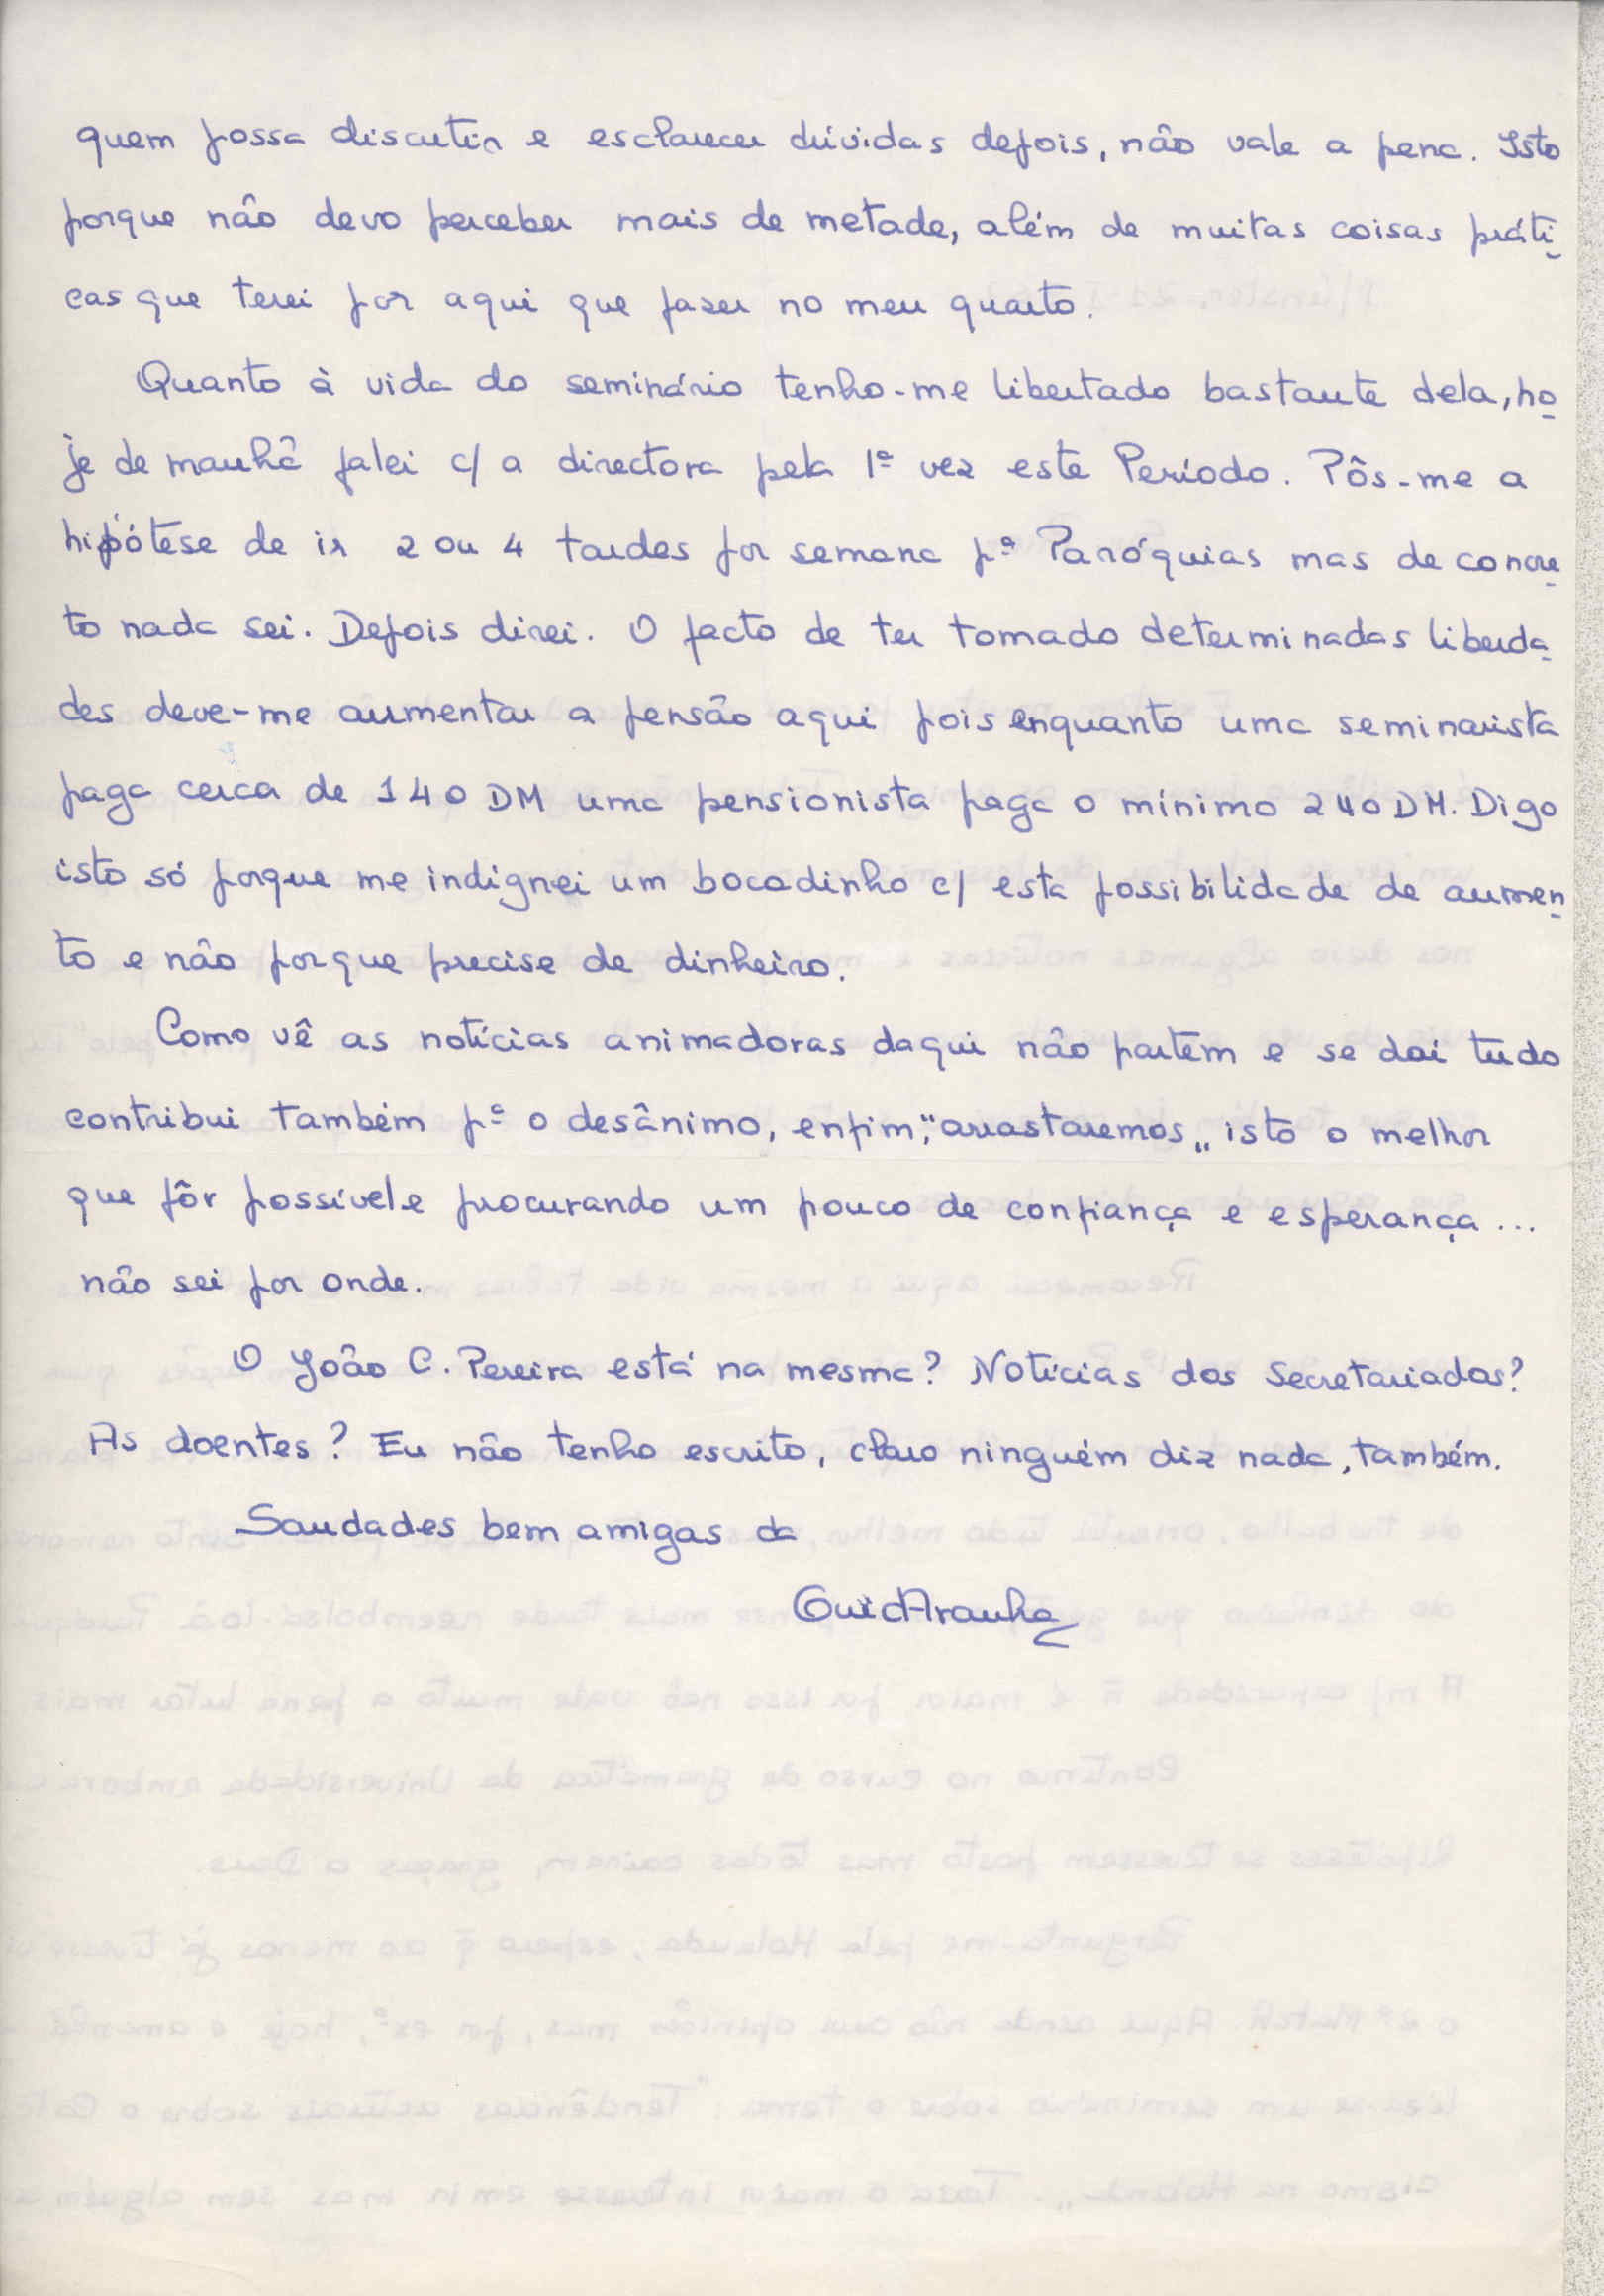 quem possa discutir e esclarecer dúvidas depois, não vale a pena. Isto
porque não devo perceber mais de metade, além de muitas coisas práti-
cas que terei por aqui que fazer no meu quarto.
Quanto à vida do seminário tenho-me libertado bastante dela, ho-
je de manhã falei c/ a directora pela 1ª vez este Período. Pôs-me a
hipótese de ir 2 ou 4 tardes por semana pª Paróquias mas de concre-
to nada sei. Depois direi. O facto de ter tomado determinadas liberda-
des deve-me aumentar a pensão aqui pois enquanto uma seminarista
paga cerca de 140 DM uma pensionista paga o mínimo 240 DM. Digo
isto só porque me indignei um bocadinho c/ esta possibilidade de aumen-
to e não porque precise de dinheiro.
Como vê as notícias animadoras daqui não partem e se daí tudo
contribui também pª o desânimo, enfim, "arrastaremos" isto o melhor
que fôr possível e procurando um pouco de confiança e esperança...
não sei por onde.
O João C. Pereira está na mesma? Notícias dos Secretariados?
As doentes? Eu não tenho escrito, claro ninguém diz nada, também.
Saudades bem amigas da